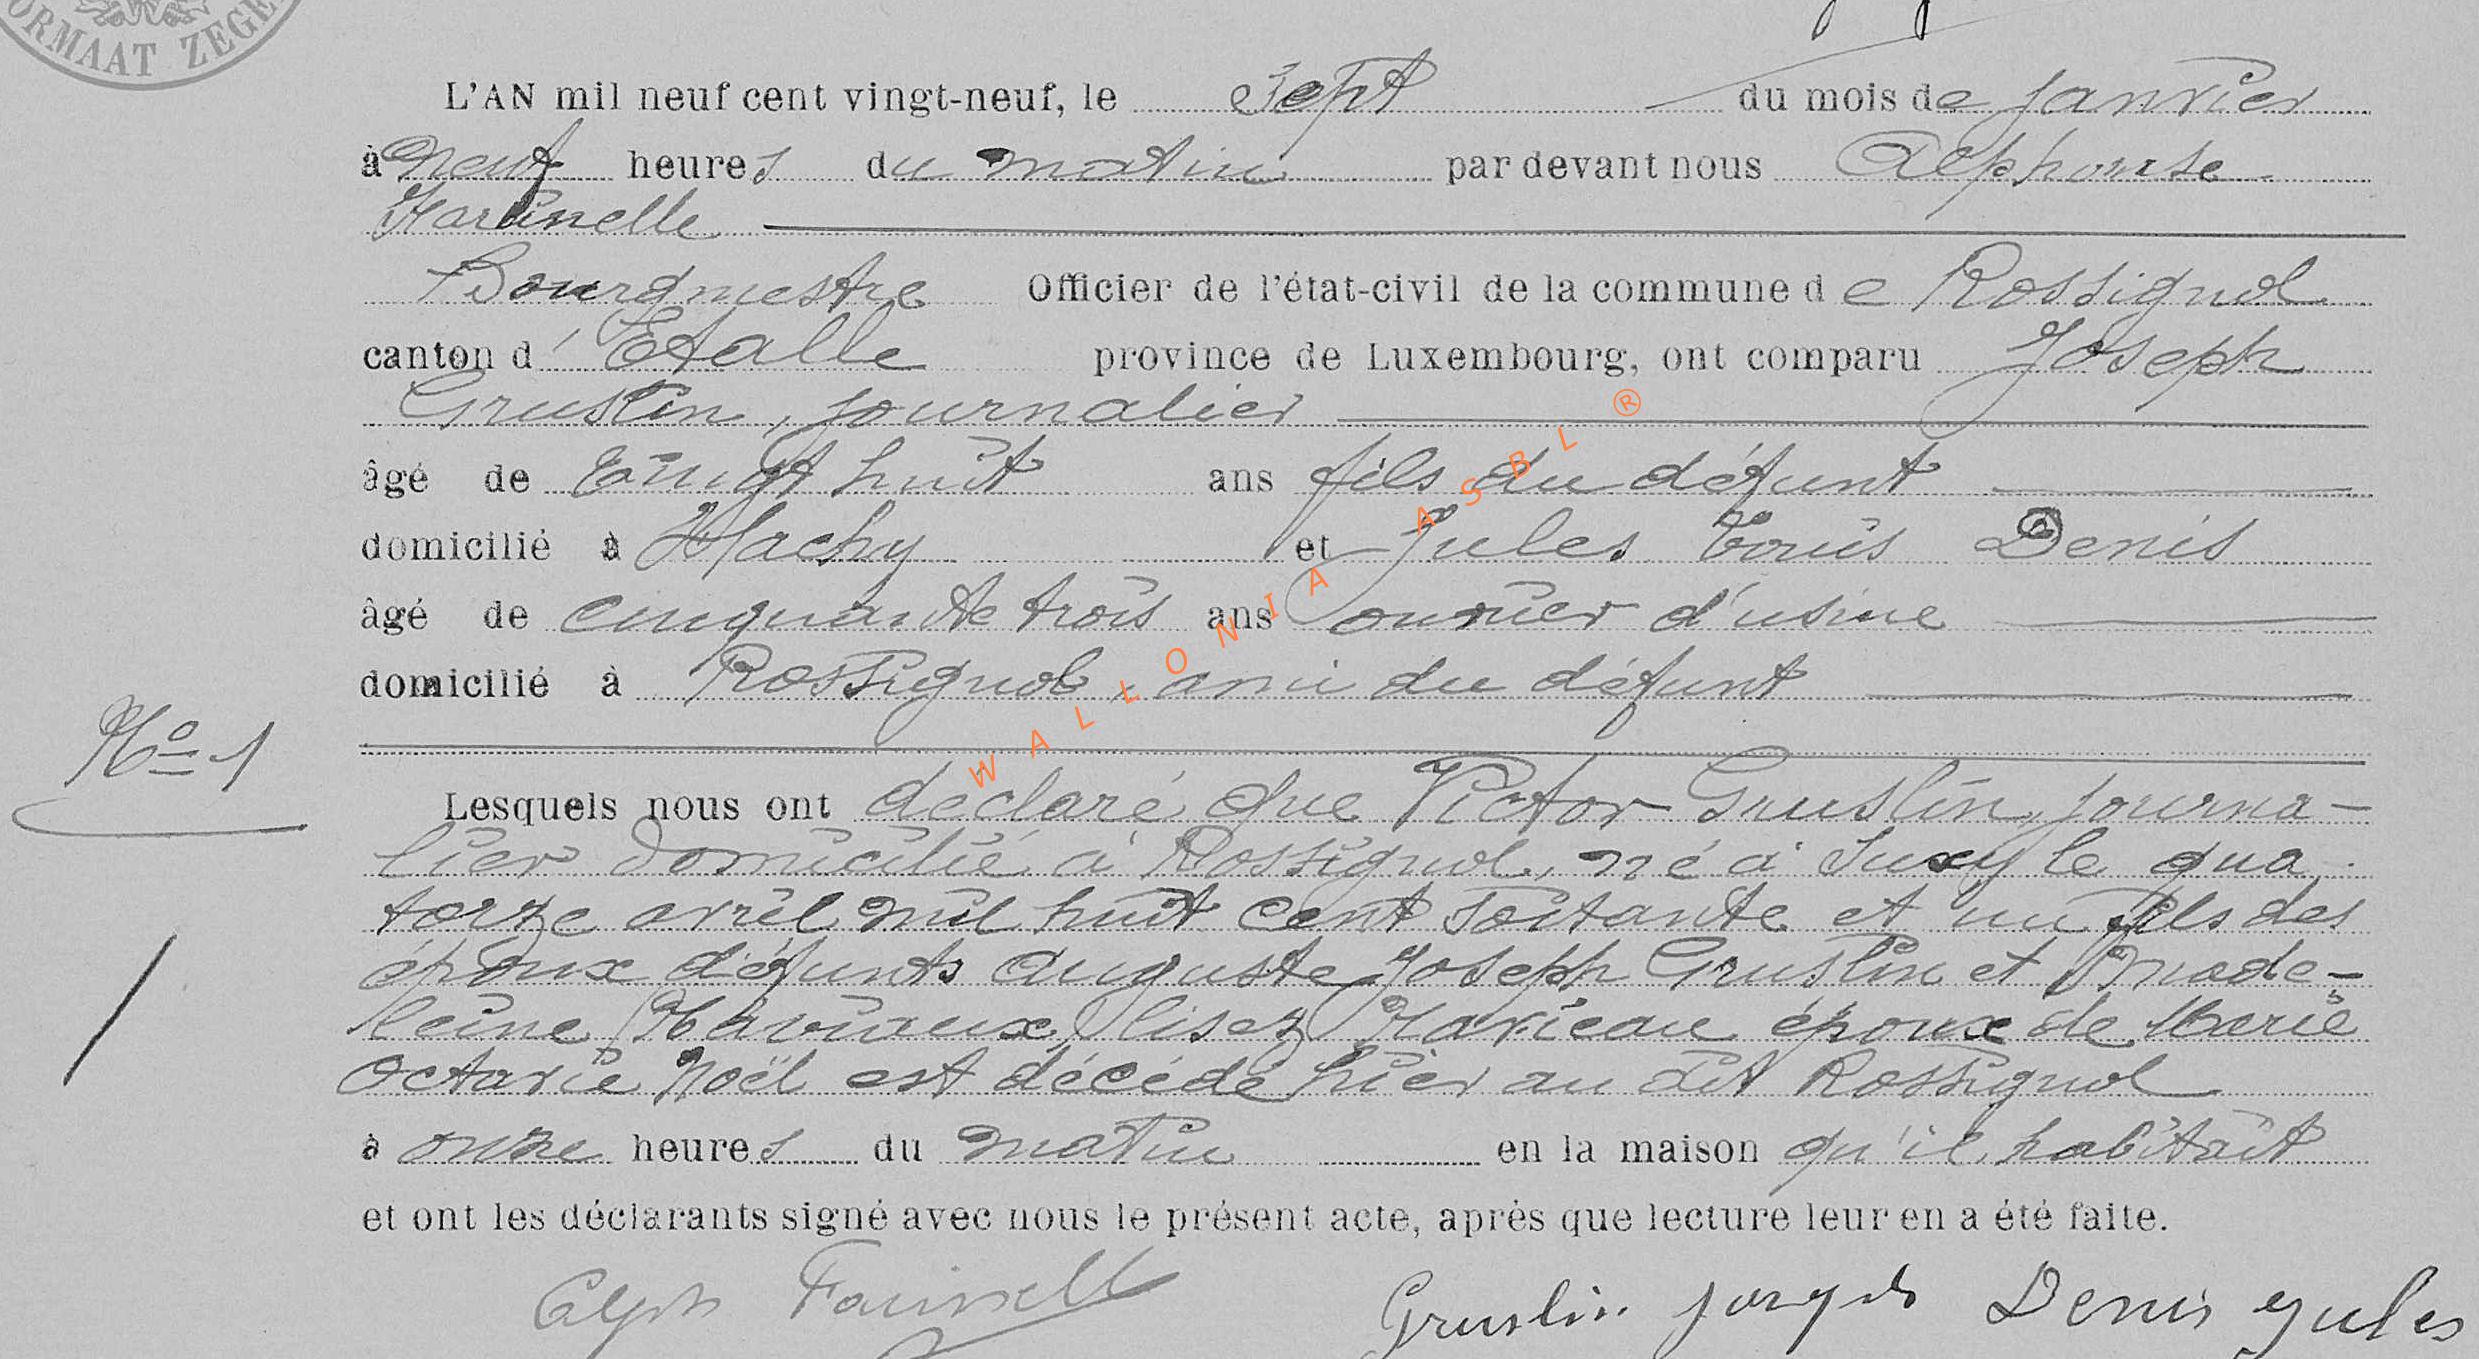 ORMAAT ZEGE
L'AN mil neuf cent vingt-neuf, le sept du mois de janvier
à neuf heures du matin par devant nous Alphonse
Harinelle
Bourgmestre Officier de l'état-civil de la commune de Rossignol
canton d'Etalle province de Luxembourg, ont comparu Joseph
Gruslin, journalier
âgé de vingt huit ans fils du défunt
domicilié à Machy et Jules Louis Denis
âgé de cinquante trois ans ouvrier d'usine
domicilié à Rossignol, ami du défunt
No 1
Lesquels nous ont déclaré que Victor Gruslin, journa-
lier domicilié à Rossignol, né à Suxy le qua
torze avril mil huit cent soixante et un fils des
époux défunts Auguste Joseph Gruslin et Made-
leine Haviaux, lisez Mavieau époux de Marie
Octavie Noël est décédé hier au dit Rossignol
à onze heures du matin en la maison qu'il habitait
et ont les déclarants signé avec nous le présent acte, après que lecture leur en a été faite.
Alph Gruslin Joseph Denis Jules
WALLONIA ASBL ®